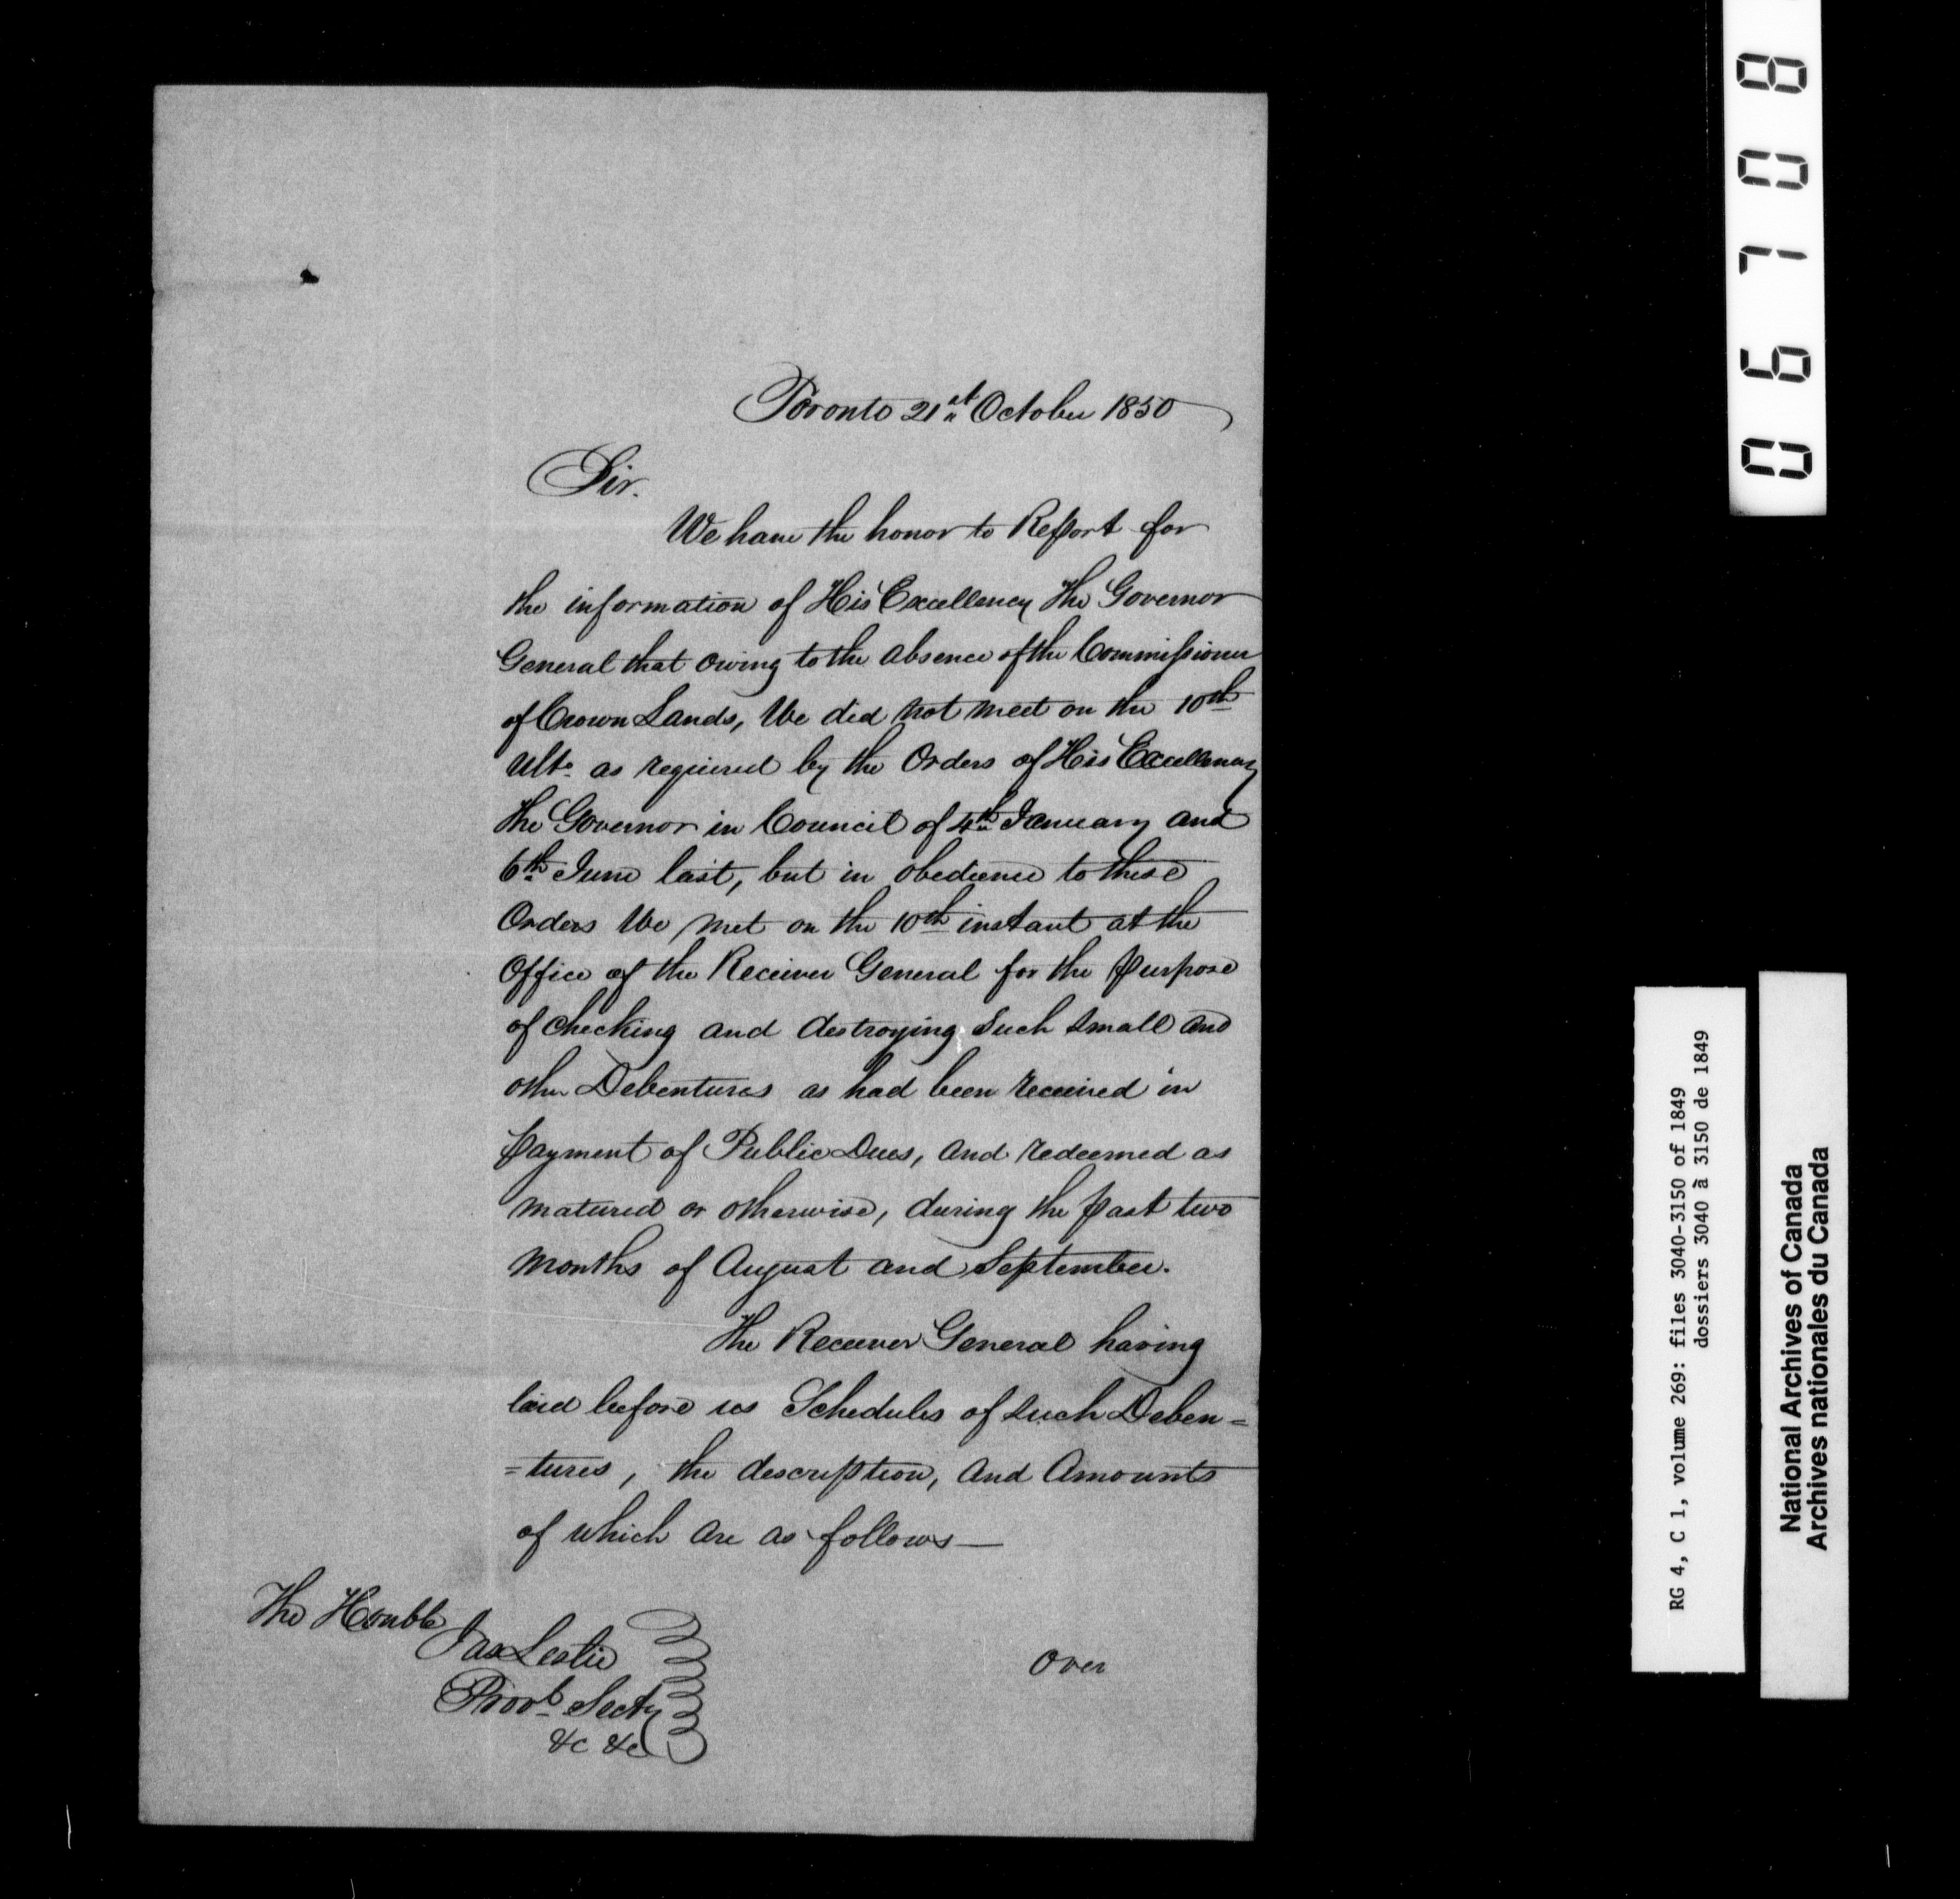 Toronto 21st October 1850
Sir.
We have the honor to Report for
the information of His Excellency The Governor
General that owing to the absence of the Commissioner
of Crown Lands, We did not meet on the 10th
Ulto. as required by the Orders of His Excellency
the Governor in Council of 4th January and
6th June last, but in obedience to these
Orders We met on the 10th instant at the
Office of the Receiver General for the purpose
of checking and destroying such small and
other Debentures as had been received in
payment of Public Dues, and redeemed as
matured or otherwise, during the past two
months of August and September.
The Receiver General having
laid before us Schedules of such Deben=
=tures, the description, and Amounts
of which are as follows—
The Honble
Jas Leslie
Provl Secty
&c &c
Over
06708
RG 4, C 1, volume 269: files 3040-3150 of 1849
dossiers 3040 à 3150 de 1849
National Archives of Canada
Archives nationales du Canada